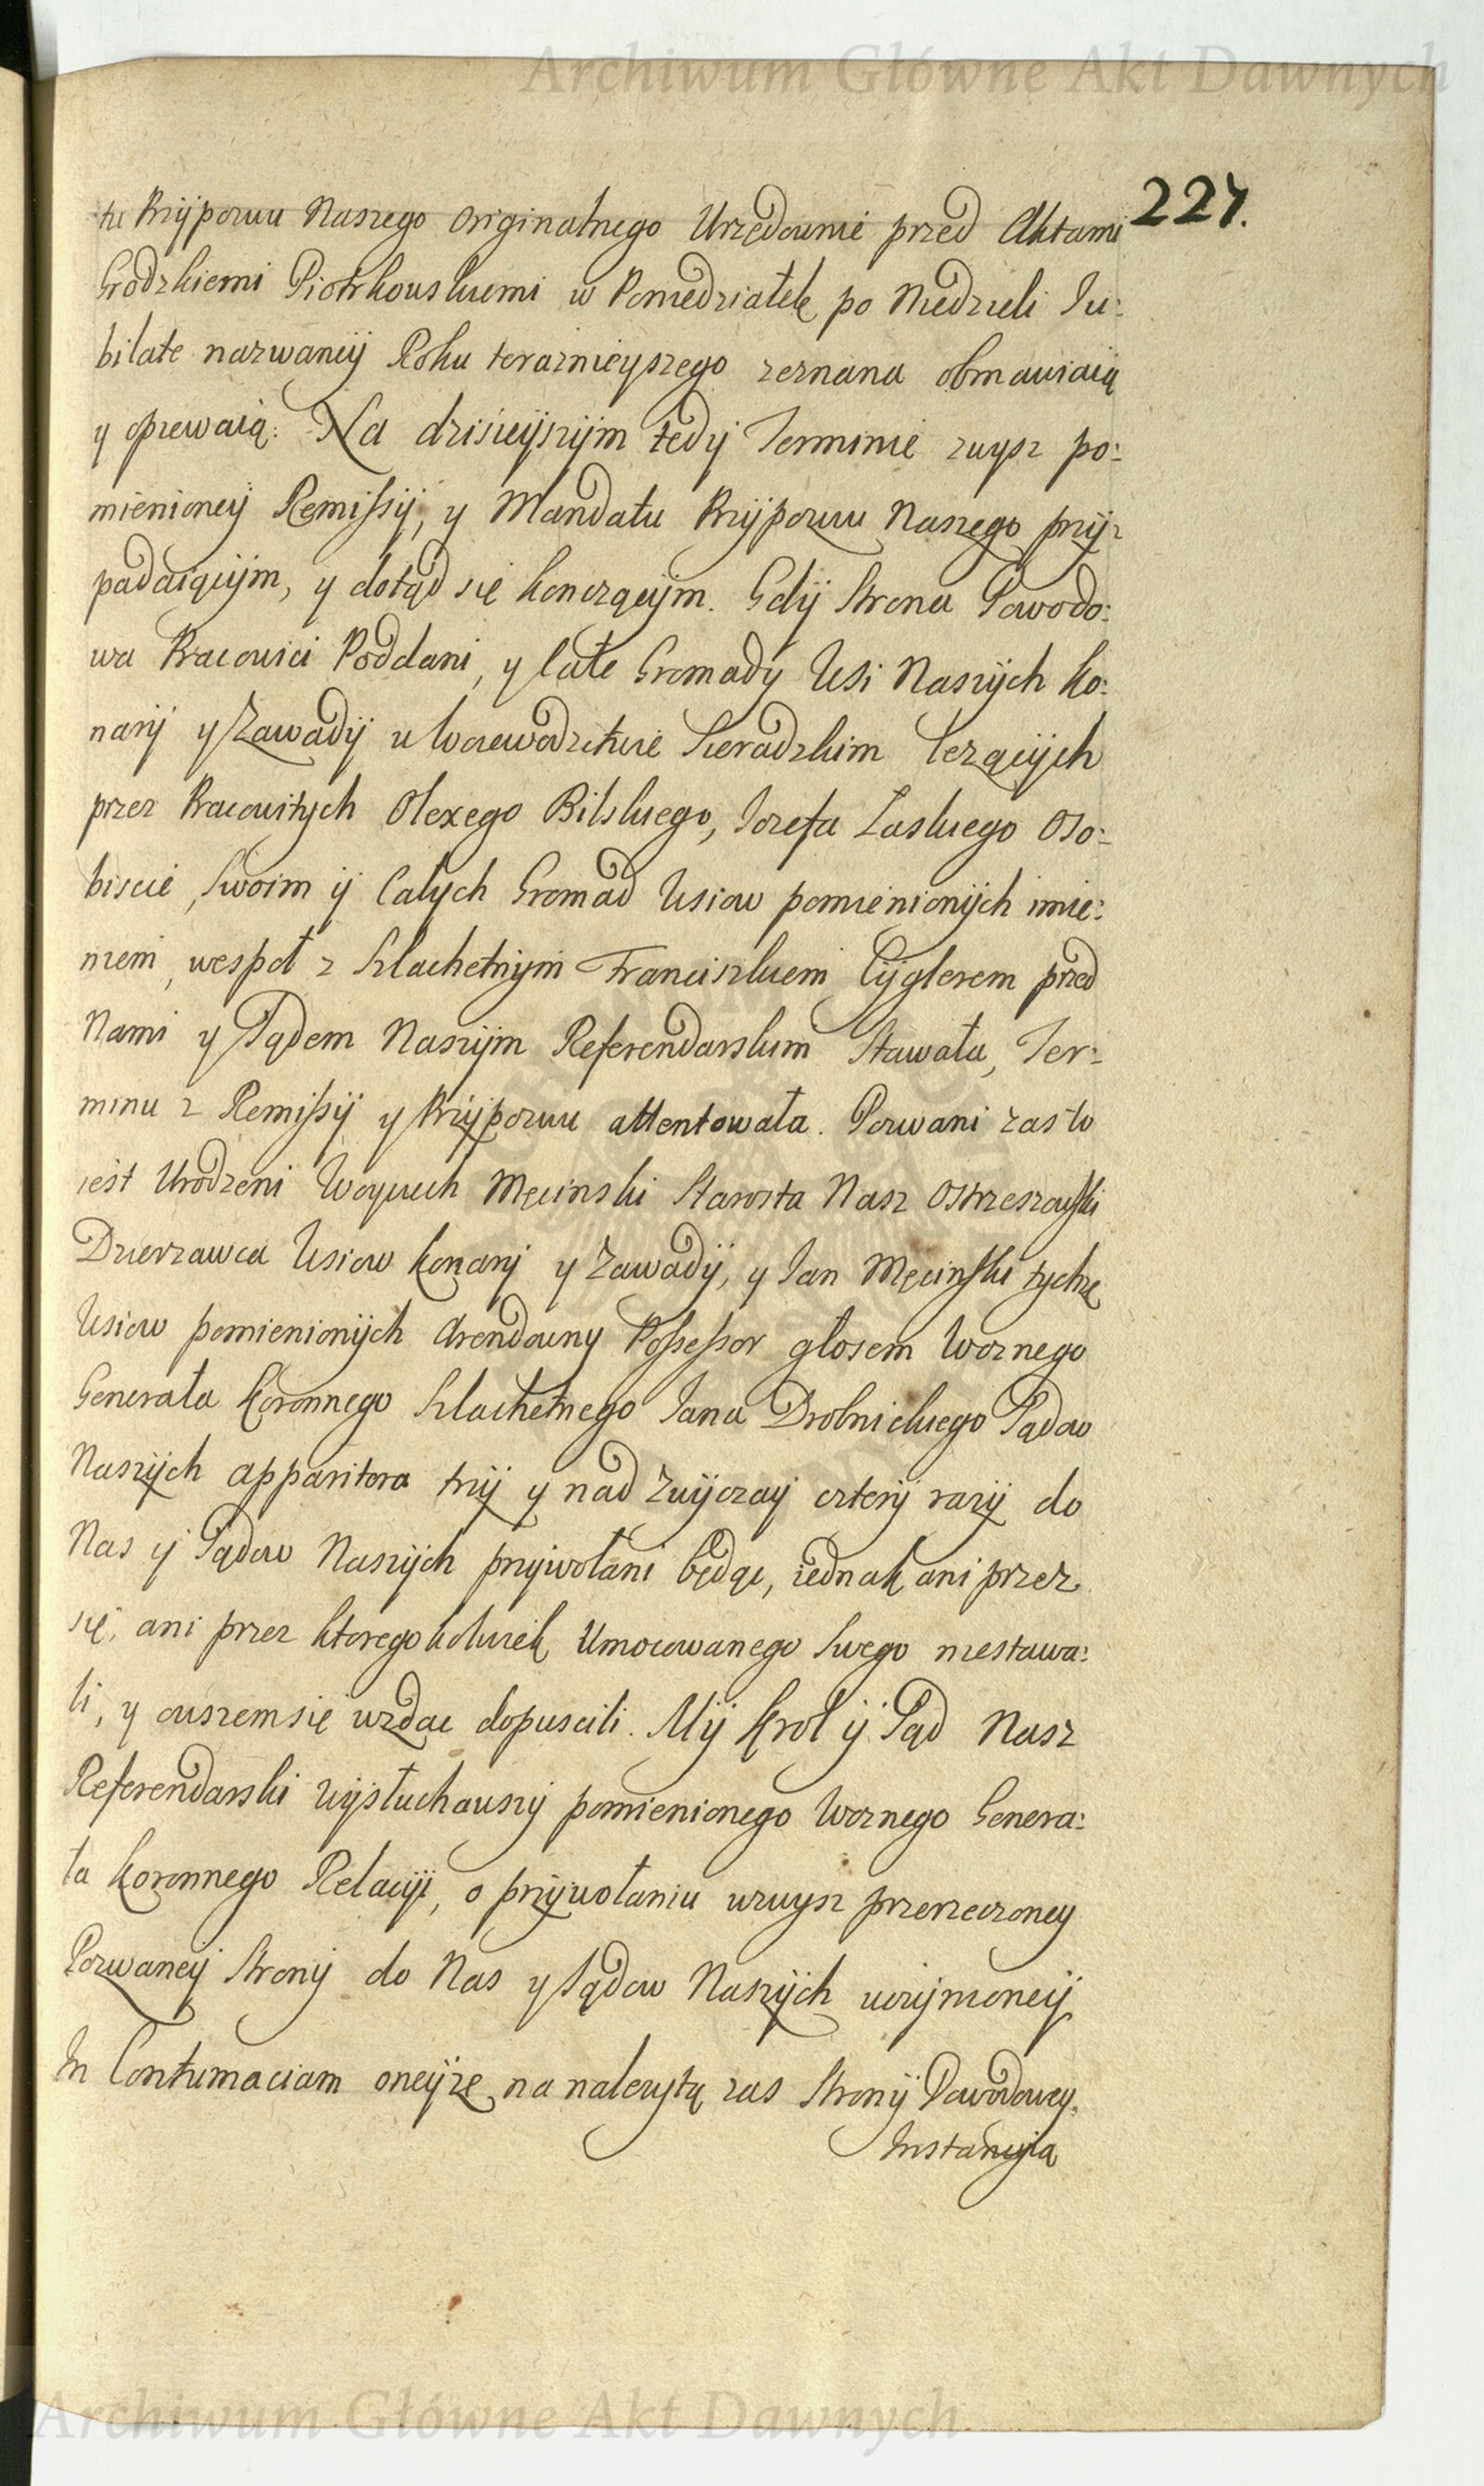 Archiwum Główne Akt Dawnych
227.
tu Przypozwu Naszego Originalnego Urzędownie przed Aktami
Grodzkiemi Piotrkowskiemi w Poniedziałek po Niedzieli Ju:
bilate nazwaney Roku teraznieyszego zeznana obmawiaią
y opiewaią: Na dzisieyszym tedy Terminie zwysz po:
mienioney Remissyi, y Mandatu Przypozwu Naszego przy:
padaiącym, y dotąd się konczącym. Gdy Strona Powodo:
wa Pracowici Poddani, y Całe Gromady Wsi Naszych Ko:
nary y Zawady w Woiewodztwie Sieradzkim lezących
przez Pracowitych Olexego Bilskiego, Jozefa Laskiego Oso:
biscie, Swoim y Całych Gromad Wsiow pomienionych imie:
niem, wespoł z Szlachetnym Franciszkiem Cyglerem przed
Nami y Sądem Naszym Referendarskim Stawała, Ter:
minu z Remissyi y Przypozwu attentowała. Pozwani zas to
iest Urodzeni Woyciech Męcinski Starosta Nasz Ostrzeszowski
Dzierzawca Wsiow Konary y Zawady, y Jan Męcinski tychze
Wsiow pomienionych Arendowny Possessor głosem Woznego
Generała Koronnego Szlachetnego Jana Drobnickiego Sądow
Naszych apparitora trzy y nad Zwyczay cztery razy do
Nas y Sądow Naszych przywołani będąc, iednak ani przez
się, ani przez ktoregokolwiek Umocowanego Swego niestawa:
li, y owszem się wzdac dopuscili. My Krol y Sąd Nasz
Referendarski wysłuchawszy pomienionego Woznego Genera:
ła Koronnego Relacyi, o przywołaniu wzwysz przerzeczoney
Pozwaney Strony do Nas y Sądow Naszych uczynioney
In Contumaciam oneyze na nalezytą zas Strony Powodowey
Instancyią
Archiwum Główne Akt Dawnych